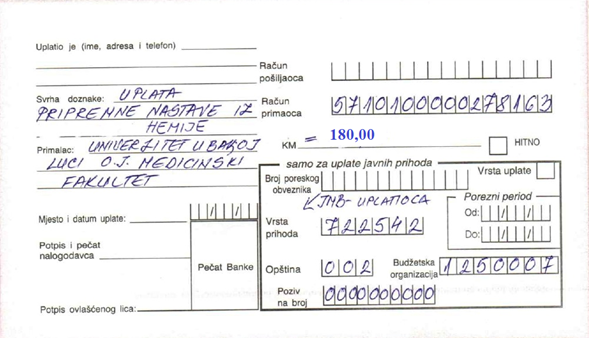 Uplatio je (ime, adresa i telefon)
Račun pošiljaoca
Svrha doznake: UPLATA
PRIPREMNE NASTAVE IZ
HEMIJE
Račun primaoca 5710100000278163
Primalac: UNIVERZITET U BANJOJ
LUCI O.J. MEDICINSKI
FAKULTET
KM = 180,00
HITNO
samo za uplate javnih prihoda
Vrsta uplate
Broj poreskog obveznika
JMB-UPLATIOCA
Porezni period
Od:
Do:
Vrsta prihoda 722542
Mjesto i datum uplate:
Potpis i pečat nalogodavca
Pečat Banke
Opština 002
Budžetska organizacija 1250007
Poziv na broj 0000000000
Potpis ovlašćenog lica: